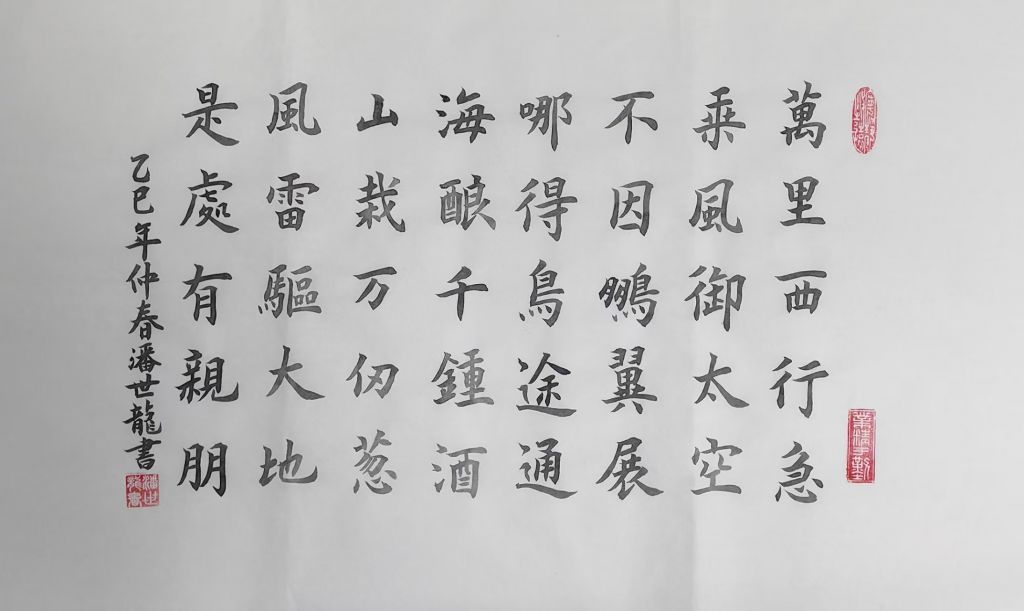 萬里西行急
乘風御太空
不因鵬翼展
哪得鳥途通
海酿千鍾酒
山栽万仞葱
風雷驅大地
是處有親朋
乙巳年仲春潘世龍書